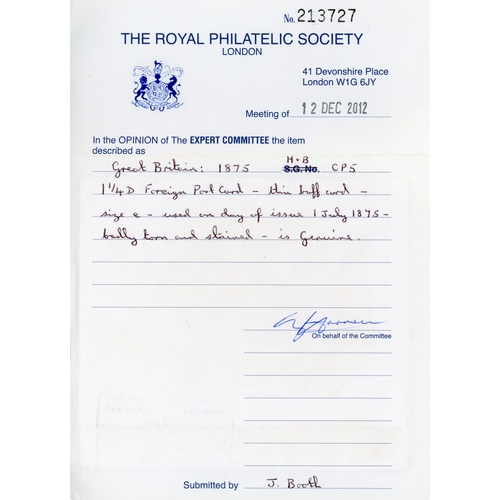 No. 213727
THE ROYAL PHILATELIC SOCIETY
LONDON
41 Devonshire Place
London W1G 6JY
Meeting of 12 DEC 2012
In the OPINION of The EXPERT COMMITTEE the item
described as
H+B
Great Britain: 1875 S.G. No. CP5
1¼D Foreign Post Card - thin buff card -
size e - used on day of issue 1 July 1875 -
badly torn and stained - is Genuine.
On behalf of the Committee
Submitted by J. Booth